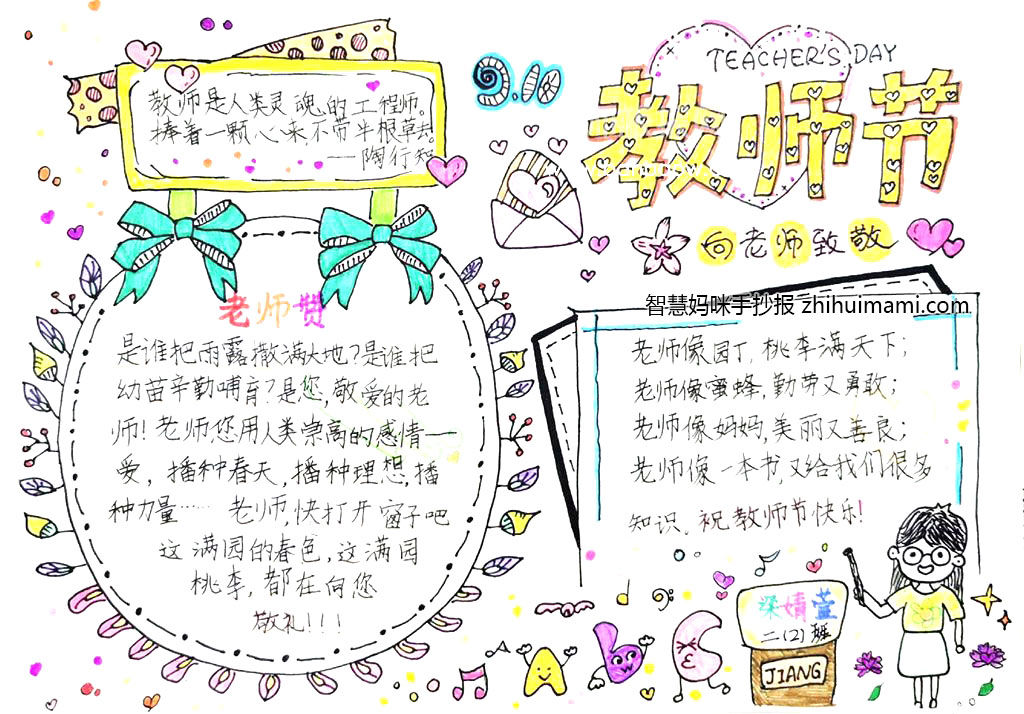 9.10
TEACHER'S DAY
教师节
向老师致敬
教师是人类灵魂的工程师。
捧着一颗心来,不带半根草去。
——陶行知
老师赞
是谁把雨露撒满大地?是谁把
幼苗辛勤哺育?是您,敬爱的老
师!老师您用人类崇高的感情——
爱,播种春天,播种理想,播
种力量…… 老师,快打开窗子吧
这满园的春色,这满园
桃李,都在向您
敬礼!!!
智慧妈咪手抄报 zhihuimami.com
老师像园丁,桃李满天下;
老师像蜜蜂,勤劳又勇敢;
老师像妈妈,美丽又善良;
老师像一本书,又给我们很多
知识。祝教师节快乐!
梁婧萱
二(2)班
JIANG
智慧妈咪手抄报 zhihuimami.com